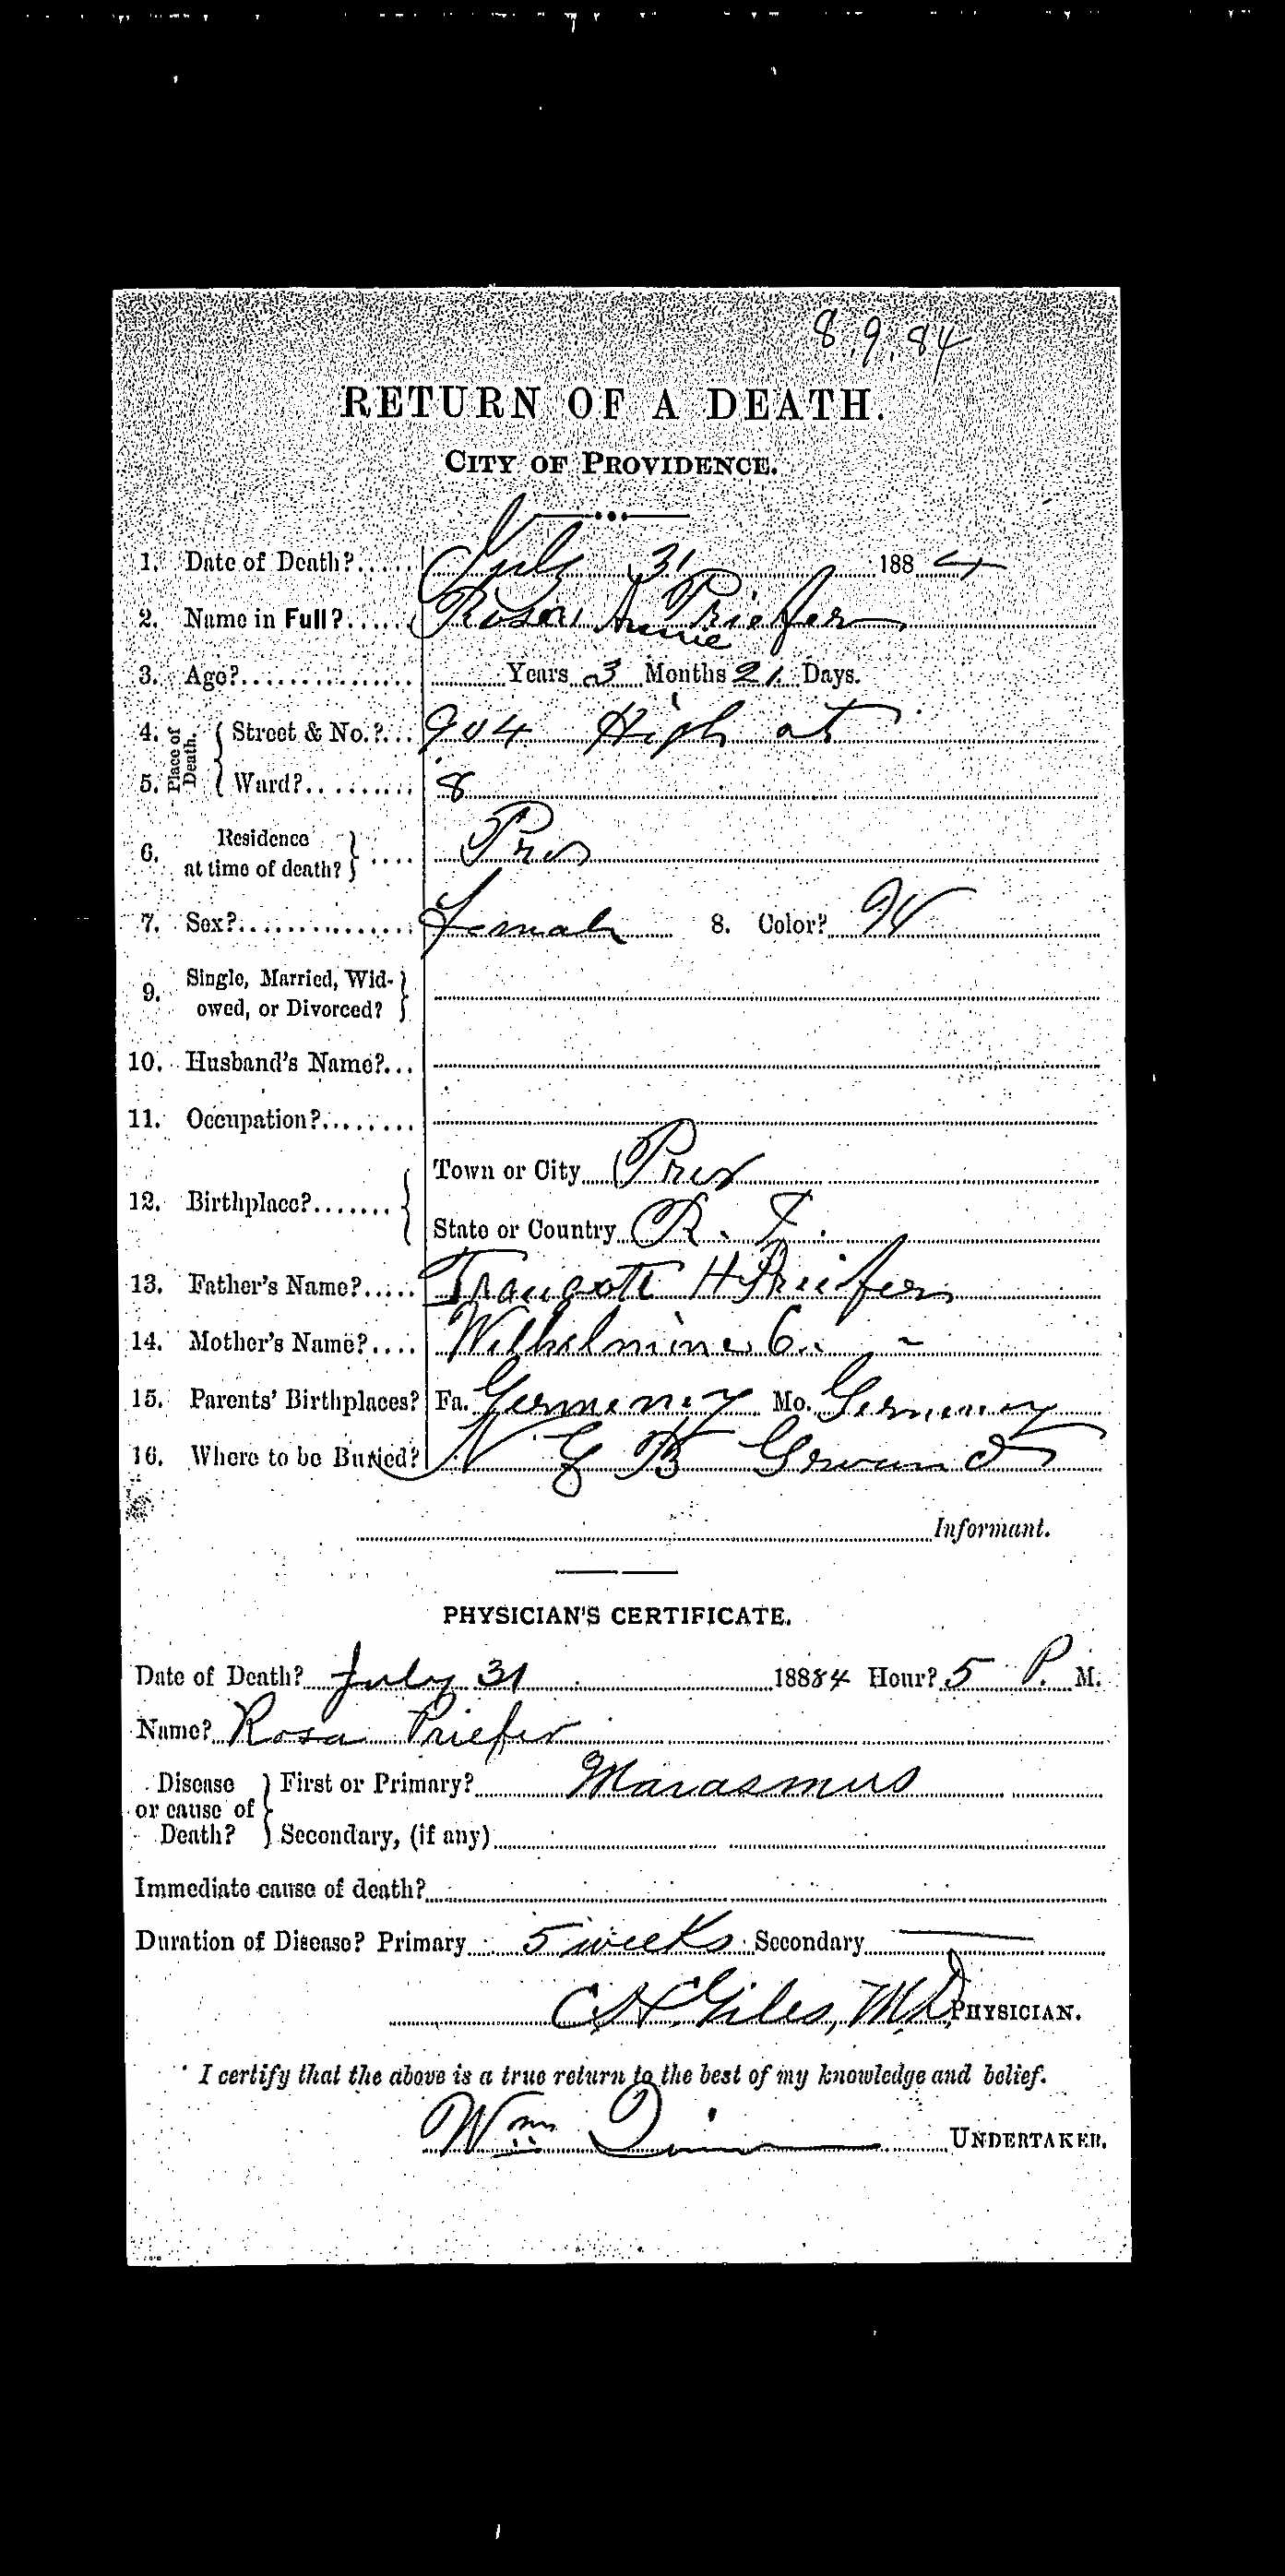 8.9.84
RETURN OF A DEATH.
CITY OF PROVIDENCE.
1. Date of Death?...... July 31 1884
2. Name in Full?...... Rosa Annie Priefer
3. Age?............... Years 3 Months 21 Days.
4. Place of Death. Street & No.?... 904 High st
5. Ward?.......... 8
6. Residence at time of death? .... Prov
7. Sex?............... Female 8. Color? W
9. Single, Married, Widowed, or Divorced?
10. Husband's Name?...
11. Occupation?........
12. Birthplace?....... Town or City Prov
State or Country R. I.
13. Father's Name?..... Traugott H Priefer
14. Mother's Name?.... Wilhelmine C. "
15. Parents' Birthplaces? Fa. Germeney Mo. Germeney
16. Where to be Buried? N B Ground
Informant.
PHYSICIAN'S CERTIFICATE.
Date of Death? July 31 18884 Hour? 5 P. M.
Name? Rosa Priefer
Disease or cause of Death? First or Primary? Marasmus
Secondary, (if any)
Immediate cause of death?
Duration of Disease? Primary 5 weeks Secondary —
Giles, M.D. PHYSICIAN.
I certify that the above is a true return to the best of my knowledge and belief.
Wm UNDERTAKER.